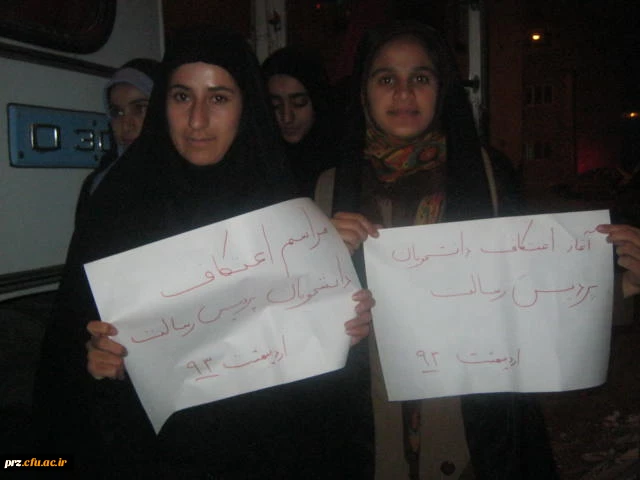 مراسم اعتکاف
دانشجویان پردیس رسالت
اردیبهشت ۹۳
آغاز اعتکاف دانشجویان
پردیس رسالت
اردیبهشت ۹۳
prz.cfu.ac.ir